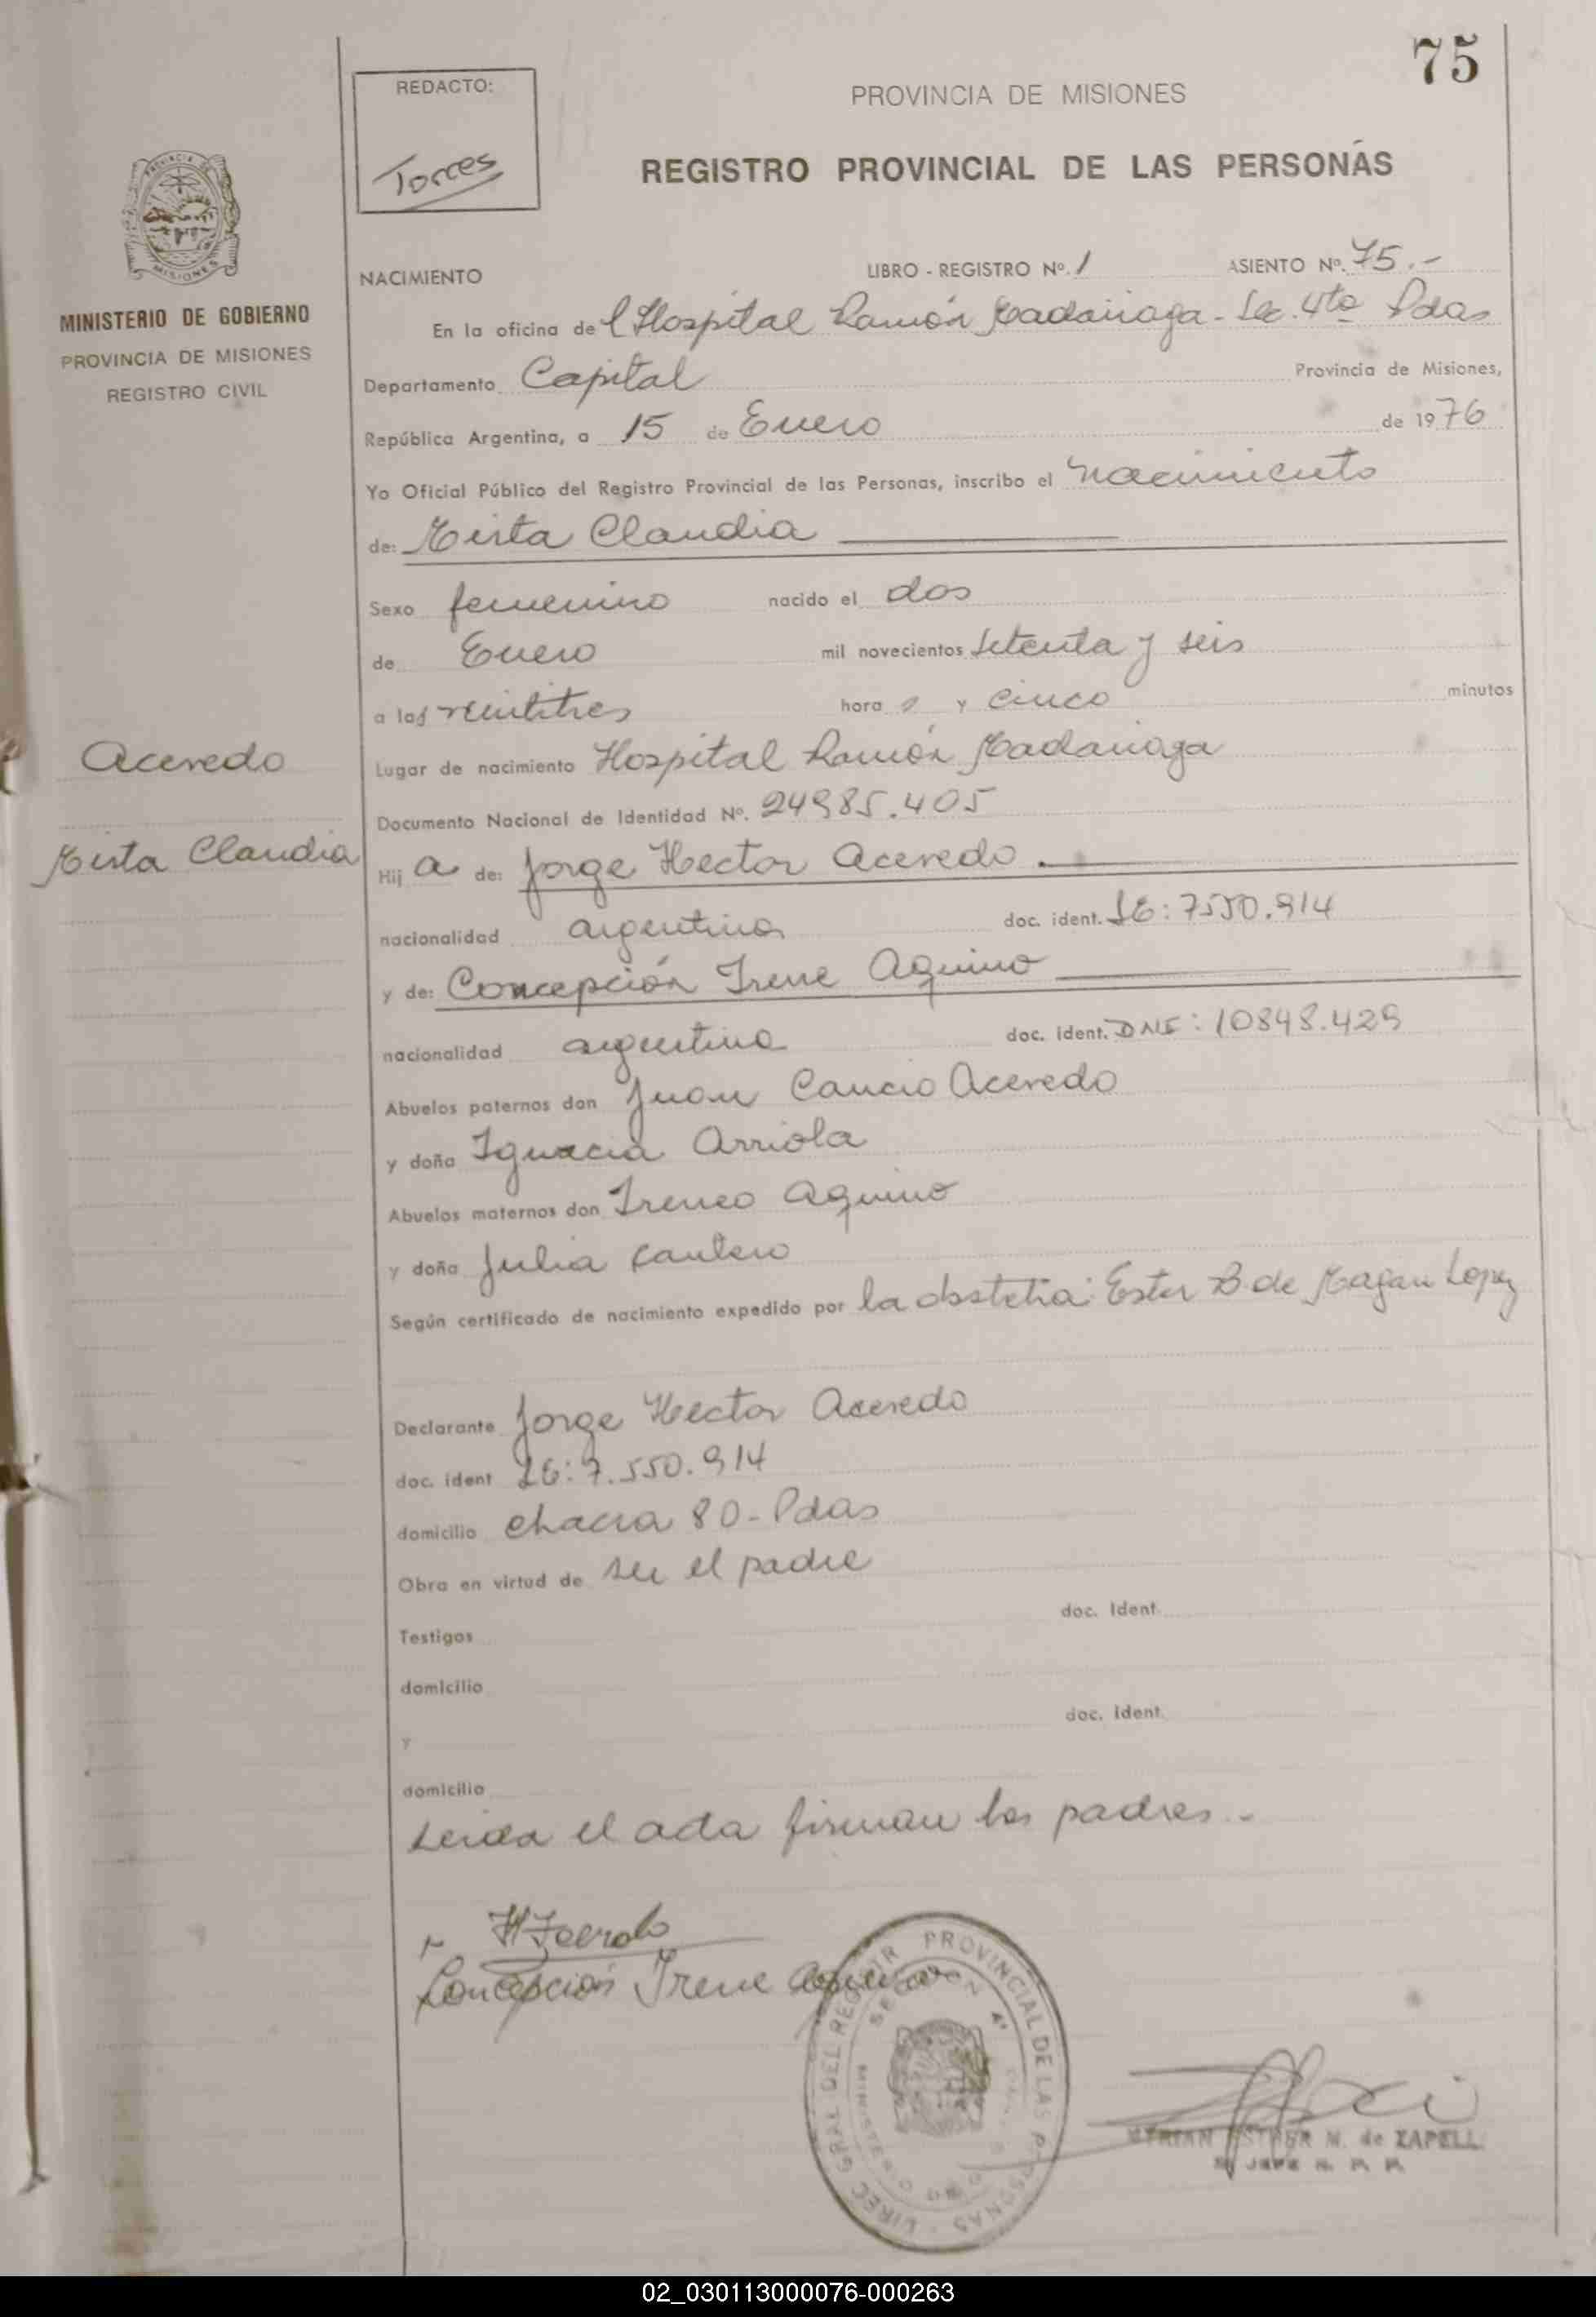 75
REDACTO:
Torres
PROVINCIA DE MISIONES
REGISTRO PROVINCIAL DE LAS PERSONAS
MINISTERIO DE GOBIERNO
PROVINCIA DE MISIONES
REGISTRO CIVIL
NACIMIENTO LIBRO - REGISTRO Nº. 1 ASIENTO Nº. 75.-
En la oficina del Hospital Ramón Madariaga - Sec. 4ta Pdas
Departamento Capital Provincia de Misiones,
República Argentina, a 15 de Enero de 1976
Yo Oficial Público del Registro Provincial de las Personas, inscribo el nacimiento
de: Mirta Claudia
Sexo femenino nacido el dos
de Enero mil novecientos setenta y seis
a las veintitres hora s y cinco minutos
Lugar de nacimiento Hospital Ramón Madariaga
Documento Nacional de Identidad Nº. 24985.405
Acevedo
Mirta Claudia
Hij a de: Jorge Hector Acevedo.
nacionalidad argentina doc. ident. LE: 7550.914
y de: Concepción Irene Aquino
nacionalidad argentina doc. ident. DNI: 10848.429
Abuelos paternos don Juan Cancio Acevedo
y doña Ignacia Arriola
Abuelos maternos don Ireneo Aquino
y doña Julia Cantero
Según certificado de nacimiento expedido por la obstetra: Ester B. de Magan Lopez
Declarante Jorge Hector Acevedo
doc. ident LE: 7.550.914
domicilio chacra 80 - Pdas
Obra en virtud de ser el padre
doc. Ident.
Testigos
domicilio
doc. Ident.
y
domicilio
Leida el acta firman los padres.-
Concepción Irene Aquino
DIREC GRAL DEL REGISTR PROVINCIAL DE LAS PERSONAS
SECCION 4ª
ESTHER M. de ZAPELL
02_030113000076-000263